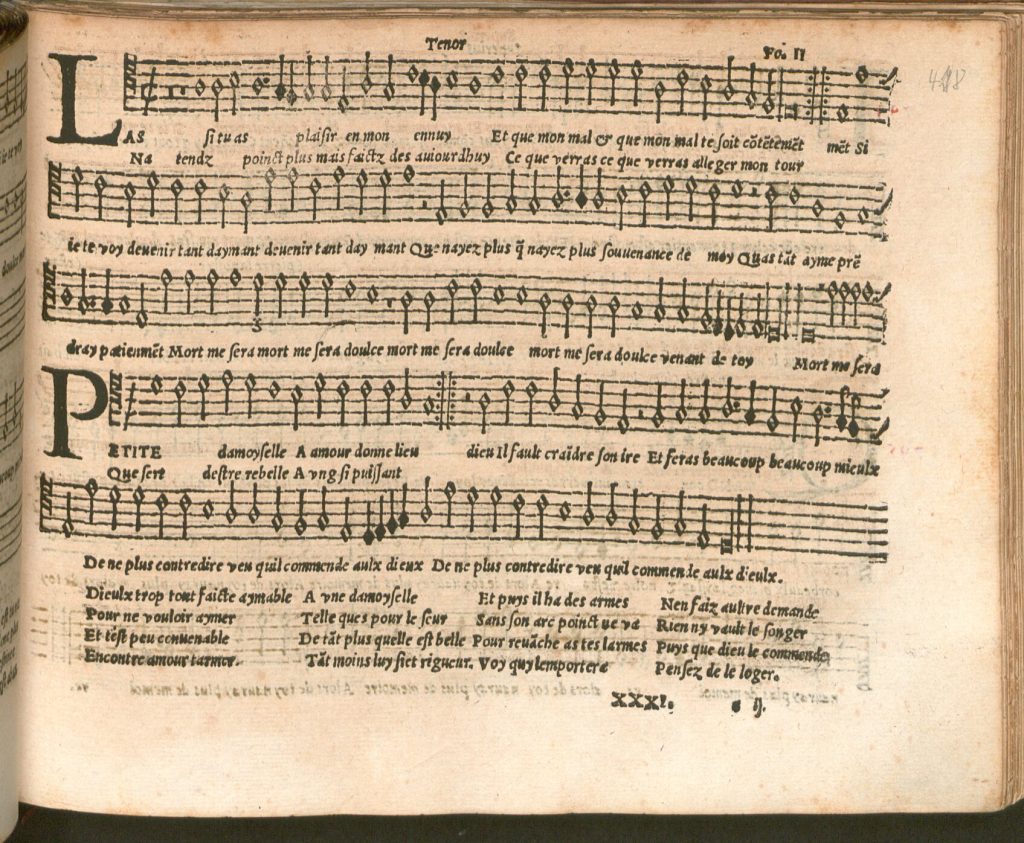 Tenor
Fo. II
LAS si tu as plaisir en mon ennuy Et que mon mal & que mon mal te soit cõtẽtemẽt mẽt Si
Na tendz poinct plus mais faictz des auiourdhuy Ce que verras ce que verras alleger mon tour
ie te voy deuenir tant daymant deuenir tant day mant Que nayez plus q̃ nayez plus souuenance de moy Quas tãt ayme prẽ
dray patienmẽt Mort me sera mort me sera doulce mort me sera doulce mort me sera doulce venant de toy Mort me sera
PETITE damoyselle A amour donne lieu dieu Il fault craĩdre son ire Et feras beaucoup beaucoup mieulx
Que sert destre rebelle A vng si puissant
De ne plus contredire veu quil commende aulx dieux De ne plus contredire veu quil commende aulx dieulx.
Dieulx trop tont faicte aymable A vne damoyselle Et puys il ha des armes Nen faiz aultre demande
Pour ne vouloir aymer Telle ques pour le seur Sans son arc poinct ne va Rien ny vault le songer
Et test peu conuenable De tãt plus quelle est belle Pour reuãche as tes larmes Puys que dieu le commende
Encontre amour tarmer. Tãt moins luy siet rigueur. Voy quy lemportera Pensez de le loger.
XXXI. ij.